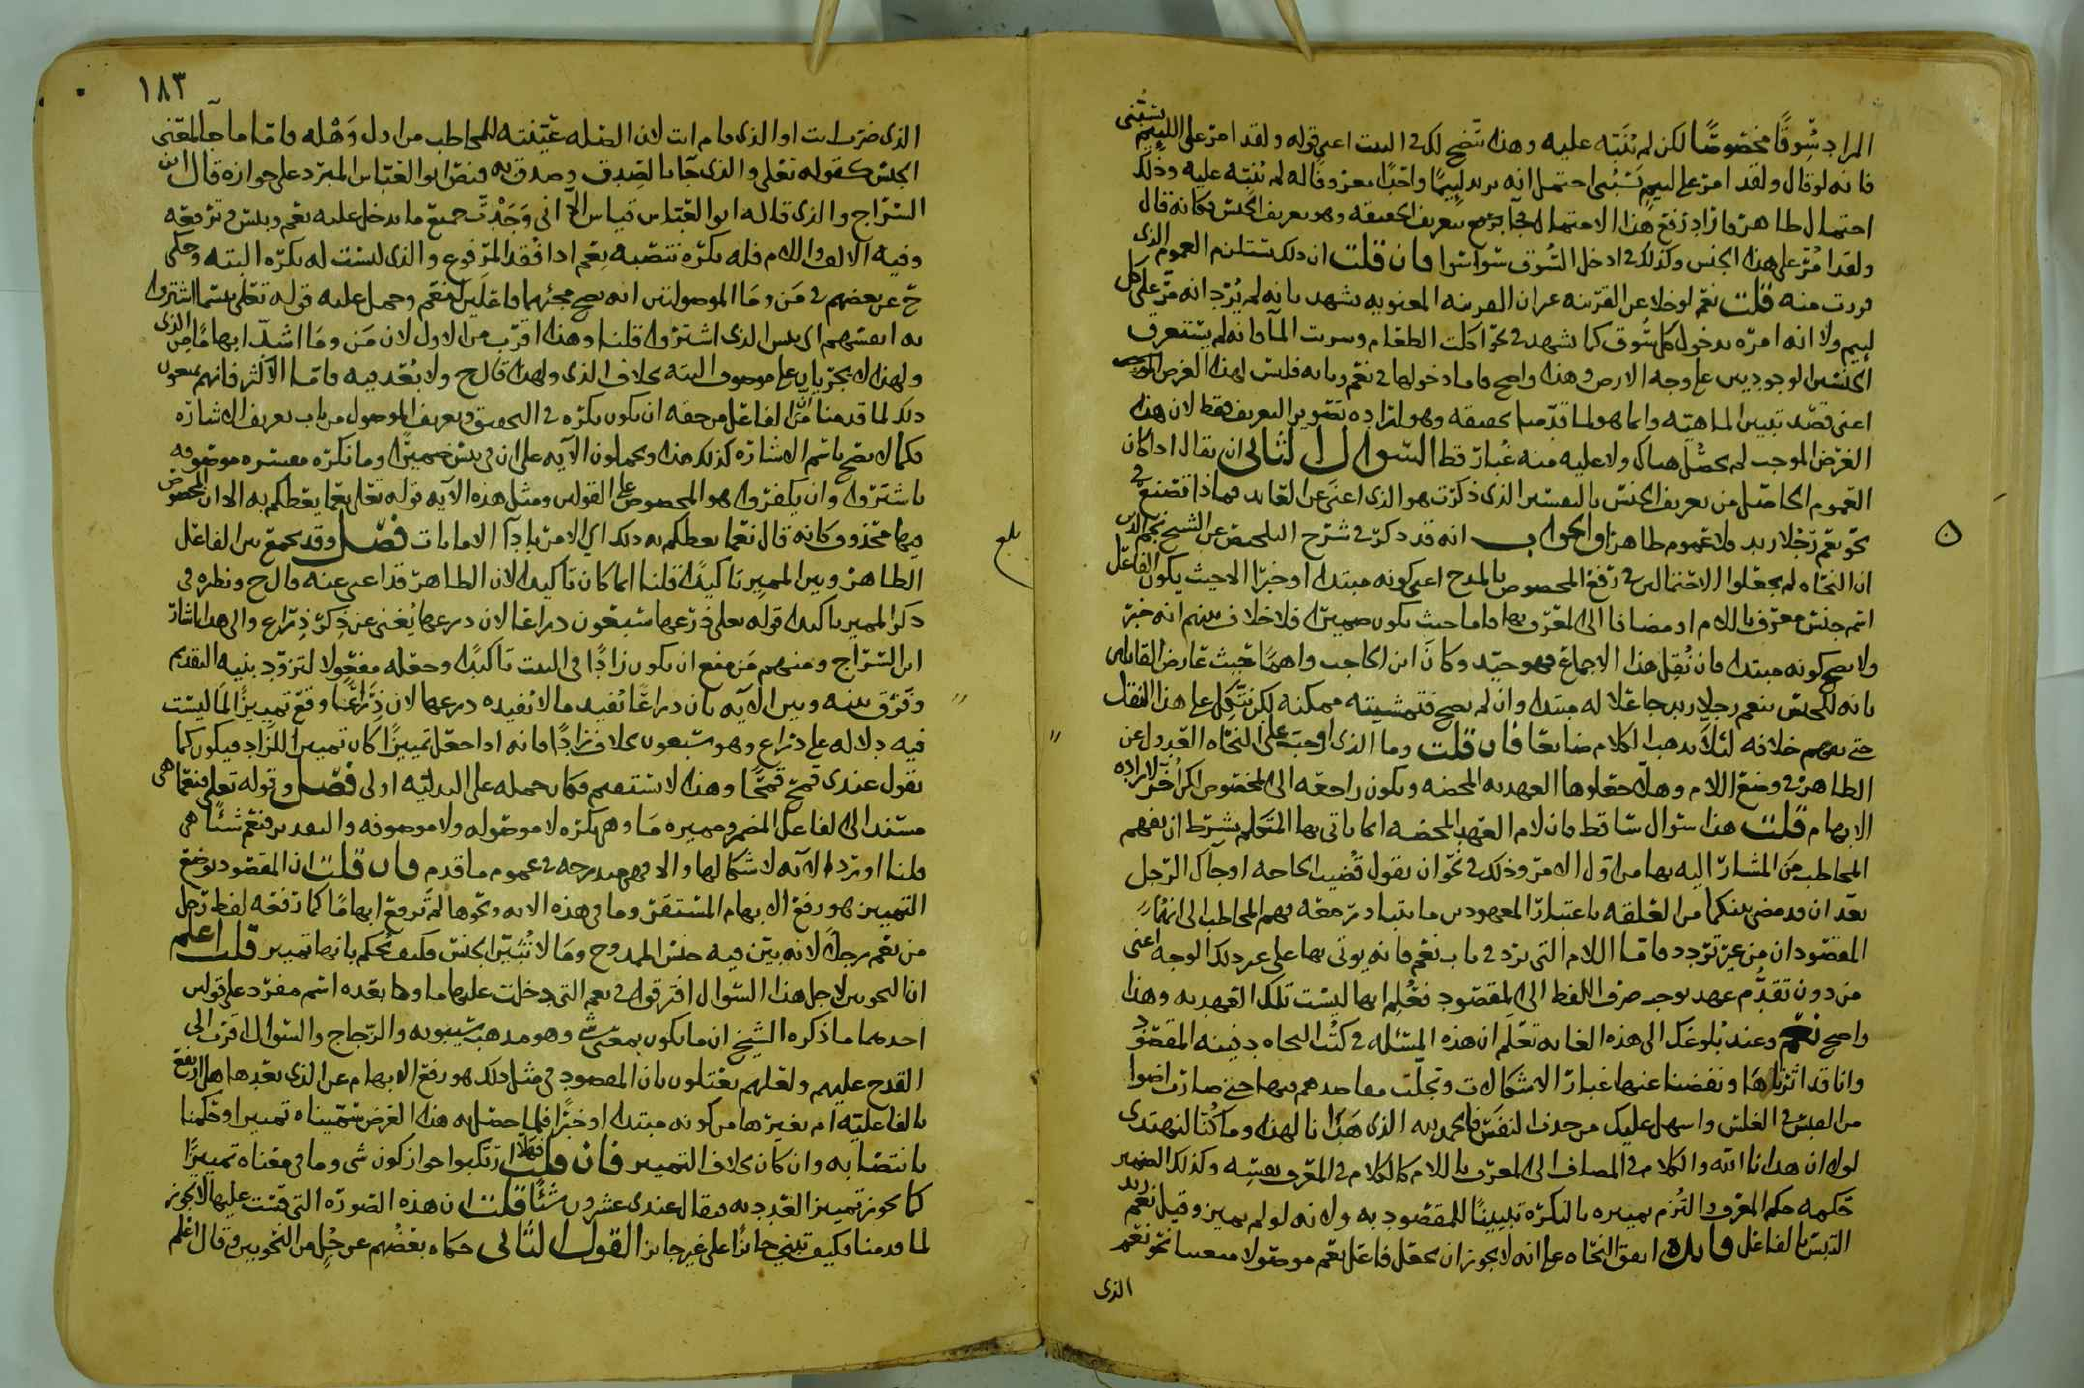 المراد سُوقًا مخصوصًا لكن لم يُنَبّه عليه وهذا يتضح لك في البيت اعني قوله ولقد امرّ على اللئيم يسبّني
فانه لو قال ولقد امرّ على لئيم يَسُبُّني احتمل انه يريد لئيمًا واحدًا معروفًا له لم يُنَبّه عليه وذلك
احتمال ظاهر فاراد رفع هذا الاحتمال فجا بتعريف الحقيقه وهو تعريف الجنس فكانه قال
ولقد امُرّ على هذا الجنس وكذلك في ادخل السُوق فان قلت ان ذلك يستلزم العموم الذي
فررت منه قلت نعم لو خلا عن القرينه غير ان القرينه المعنويه تشهد بانه لم يُرِد انه مرّ على كل
لئيم ولا انه امره بدخول كل سُوق كما تشهد في نحو اكلت الطعام وشربت المآ فانه لم يستغرق
الجنسين الموجودين على وجه الارض وهذا واضح فاما دخولها في نعم وبابه فليس لهذا الغرض
اعني قصد تبيين الماهيّه وانما هو لما قدّمنا تحقيقه وهو لارادة تصوير التعريف فقط لان هذا
الغرض الموجب لم يحصُل هناك ولا عليه منه غُبار قط السوال الثاني ان يقال اذا كان
العموم الحاصل من تعريف الجنس بالتفسير الذي ذكرت هو الذي اغنى عن العايد فماذا تصنع في
نحو نعم رَجُلا زيد ولا عموم ظاهرًا والجواب انه قد ذكر في شرح التلخيص عن الشيخ نجم الدين
ان النحاه لم يجعلوا الاحتمالين في رفع المخصوص بالمدح اعني كونه مبتدا او خبرًا الا حيث يكون الفاعل
اسم جنس معرّف باللام او مضافا الى المعرّف بها فاما حيث يكون ضميرًا فلا خلاف بينهم انه خبر
ولا يصح كونه مبتدا فان نُقِل هذا الاجماع فهو جيّد وكان ابن الحاجب واهمًا حيث عارض القايلين
بانه لا يحسن نعم رجلا زيد جاعلا له مبتدا وان لم يصح فتمشيته ممكنه لكن نتّكل على هذا النقل
حتى يفهم خلافه لئلا يذهب الكلام ضايعا فان قلت وما الذي اوجب على النحاه العدول عن
الظاهر في وضع اللام وهلا جعلوها العهديه المحضه ويكون راجعه الى المخصوص لارادة
الابهام قلت هذا سوال ساقط فان لام العهد المحضه انما ياتي بها المتكلم بشرط ان يفهم
المخاطب مَن المشار اليه بها من اول الامر وذلك في نحو ان يقول قُضيت الحاجه او جآك الرجل
بعد ان قد مضى بينكما من العلقه باعتبار المعهودين ما يتبادر معه فهم المخاطب الى انهما
المقصودان من غير تردد فاما اللام التي ترد في باب نعم فانه يوتى بها على غير ذلك الوجه اعني
من دون تقدُّم عهد يوجب صرف اللفظ الى المقصود فعُلِم انها ليست تلك العهديه وهذا
واضح نعم وعند بُلوغك الى هذه الغايه تعلم ان هذه المسئله في كتب النحاه دفينه المقصود
وانا قد اثرناها ونفضنا عنها غبار الاشكالات وتجلّت مقاصدهم فيها حتى صارت اضوا
من القبس في الغلس واسهل عليك من جذب النفس فالحمد لله الذي هدانا لهذا وما كنا لنهتدي
لولا ان هدانا الله والكلام في المضاف الى المعرّف باللام كالكلام في المعرّف بنفسه وكذلك الضمير
حكمه حكم المعرّف والتُزم تمييزه بالنكره تبيينًا للمقصود به ولانه لو لم يميز وقيل نعم زيد
التبس بالفاعل فايده اتفق النحاه على انه لا يجوز ان يجعل فاعل نعم موصولا معينا نحو نعم
الذي
١٨٣
الذي ضربت او الذي قام انت لان الصله عيّنته للمخاطب من اول وَهْله فاما ما جآ لمعنى
الجنس كقوله تعلى والذي جآ بالصِدق وصدق به فنصّ ابو العباس المبرّد على جوازه قال ابن
السراج والذي قاله ابو العباس قياس الا اني وَجَدْتُ جميع ما يدخل عليه نعم وبئس فترفعه
وفيه الالف واللام فله نكرة تنصبه نعم اذا فُقد المرفوع والذي ليست له نكره البته وحكى
ح عن بعضهم في مَن ومَا الموصولتين انه يصح مجيئهما فاعلَين لنعم وحمل عليه قوله تعلى بئسما اشتروا
به انفسهم اي بئس الذي اشتروا قلنا وهذا اقرب من الاول لان مَن ومَا اشدّ ابهامًا من الذي
ولهذا لا يجريان على موصوف البته بخلاف الذي ولهذا قال ح ولا بُعد فيه فاما الاكثر فانهم يمنعون
ذلك لما قدمنا من ان الفاعل من حقه ان يكون نكره في التحقيق وتعريف الموصول من باب تعريف الاشاره
فكما لا يصح باسم الاشاره كذلك هذا ويحملون الآيه على ان في بئس ضميرًا وما نكره مفسره موصوفه
باشتروا وان يكفروا هو المخصوص على القولين ومثل هذه الآيه قوله تعلى نعما يعظكم به الا ان المخصوص
فيها محذوف كانه قال نعما يعظكم به ذلك اي الامر بادآ الامانات فصل وقد يجمع بين الفاعل
الظاهر وبين المميز تاكيدًا قلنا انما كان تاكيدًا لان الظاهر قد اغنى عنه قال ح ونظيره في
ذكر المميز تاكيدًا قوله تعلى ذرعها سبعون ذراعا لان ذرعها يُغني عن ذِكر ذِراع والى هذا اشار
ابن السراج ومنهم مَن منع ان يكون زادًا في البيت تاكيدًا وجعله مفعولا لتزوّد بنيه التقديم
وفَرّق بينه وبين الآيه بان ذراعًا تُفيد ما لا تفيده ذرعها لان ذِرَاعًا وقع تمييزًا لما ليست
فيه دلاله على ذراع وهو سبعون بخلاف زادًا فانه اذا جعل تمييزًا كان تمييزا للزاد فيكون كما
تقول عندي قمح قمحًا وهذا لا يستقيم فكان حمله على البدليّه اولى فصل وقوله تعلى فنعمّا هي
مسند الى الفاعل المضمر ومميزه مَا وهي نكره لا موصوله ولا موصوفه والتقدير فنعم شيئًا هي
قلنا اورد الآيه لاشكالها والا فهي مندرجه في عموم ما قدم فان قلت ان المقصود بوضع
التمييز هو رفع الابهام المستقر وما في هذه الآيه ونحوها لم ترفع ابهامًا كما ترفعه لفظ رجل
من نعم رجلًا لانه بيّن فيه جنس الممدوح ومَا لا تُبيّن الجنس فكيف يُحكم بانها تمييز قلت اعلم
ان النحويين لاجل هذا السوال افترقوا في نعم التي دخلت عليها ما وما بعده اسم مفرد على قولين
احدهما ما ذكره الشيخ ان ما يكون بمعنى شي وهو مذهب سيبويه والزجاج والسوال اقرب الى
القدح عليهم ولعلهم يعتلون بان المقصود في مثل ذلك هو رفع الابهام عن الذي بعدها هل ارتفع
بالفاعليّه ام بغيرها من كونه مبتدا او خبرًا فلما حصل به هذا الغرض سمّيناه تمييزا وحكمنا
بانتصابه وان كان بخلاف التمييز فان قلت فهلا ارتكبوا جواز كون شي وما في معناه تمييزًا
كما يجوز تمييز العدد به فيقال عندي عشرون شئًا قلت ان هذه الصوره التي قست عليها لا تجوز
لما قدمنا وكيف تبني جائزًا على غير جائز القول الثاني حكاه بعضُهم عن جُلٍ من النحويين وقال اعلم
بلغ